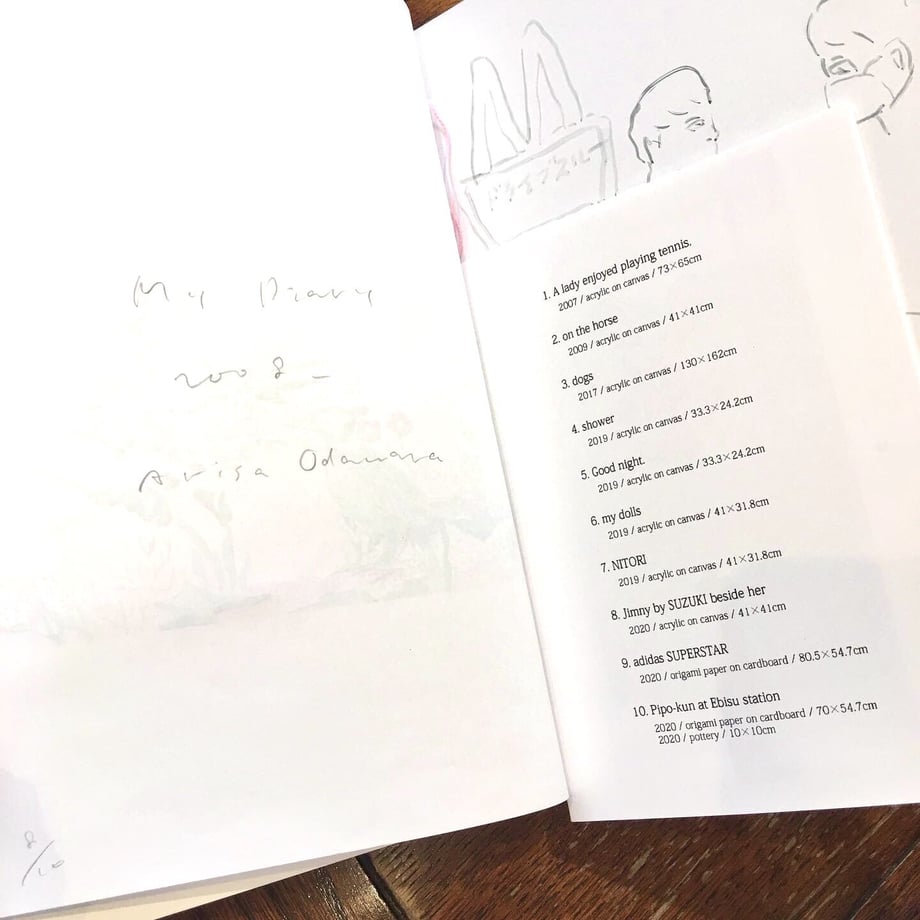 My Diary
2008_
Arisa Odawara
8/10
ドライブスルー
1. A lady enjoyed playing tennis.
2007 / acrylic on canvas / 73×65cm
2. on the horse
2009 / acrylic on canvas / 41×41cm
3. dogs
2017 / acrylic on canvas / 130×162cm
4. shower
2019 / acrylic on canvas / 33.3×24.2cm
5. Good night.
2019 / acrylic on canvas / 33.3×24.2cm
6. my dolls
2019 / acrylic on canvas / 41×31.8cm
7. NITORI
2019 / acrylic on canvas / 41×31.8cm
8. Jimny by SUZUKI beside her
2020 / acrylic on canvas / 41×41cm
9. adidas SUPERSTAR
2020 / origami paper on cardboard / 80.5×54.7cm
10. Pipo-kun at Ebisu station
2020 / origami paper on cardboard / 70×54.7cm
2020 / pottery / 10×10cm